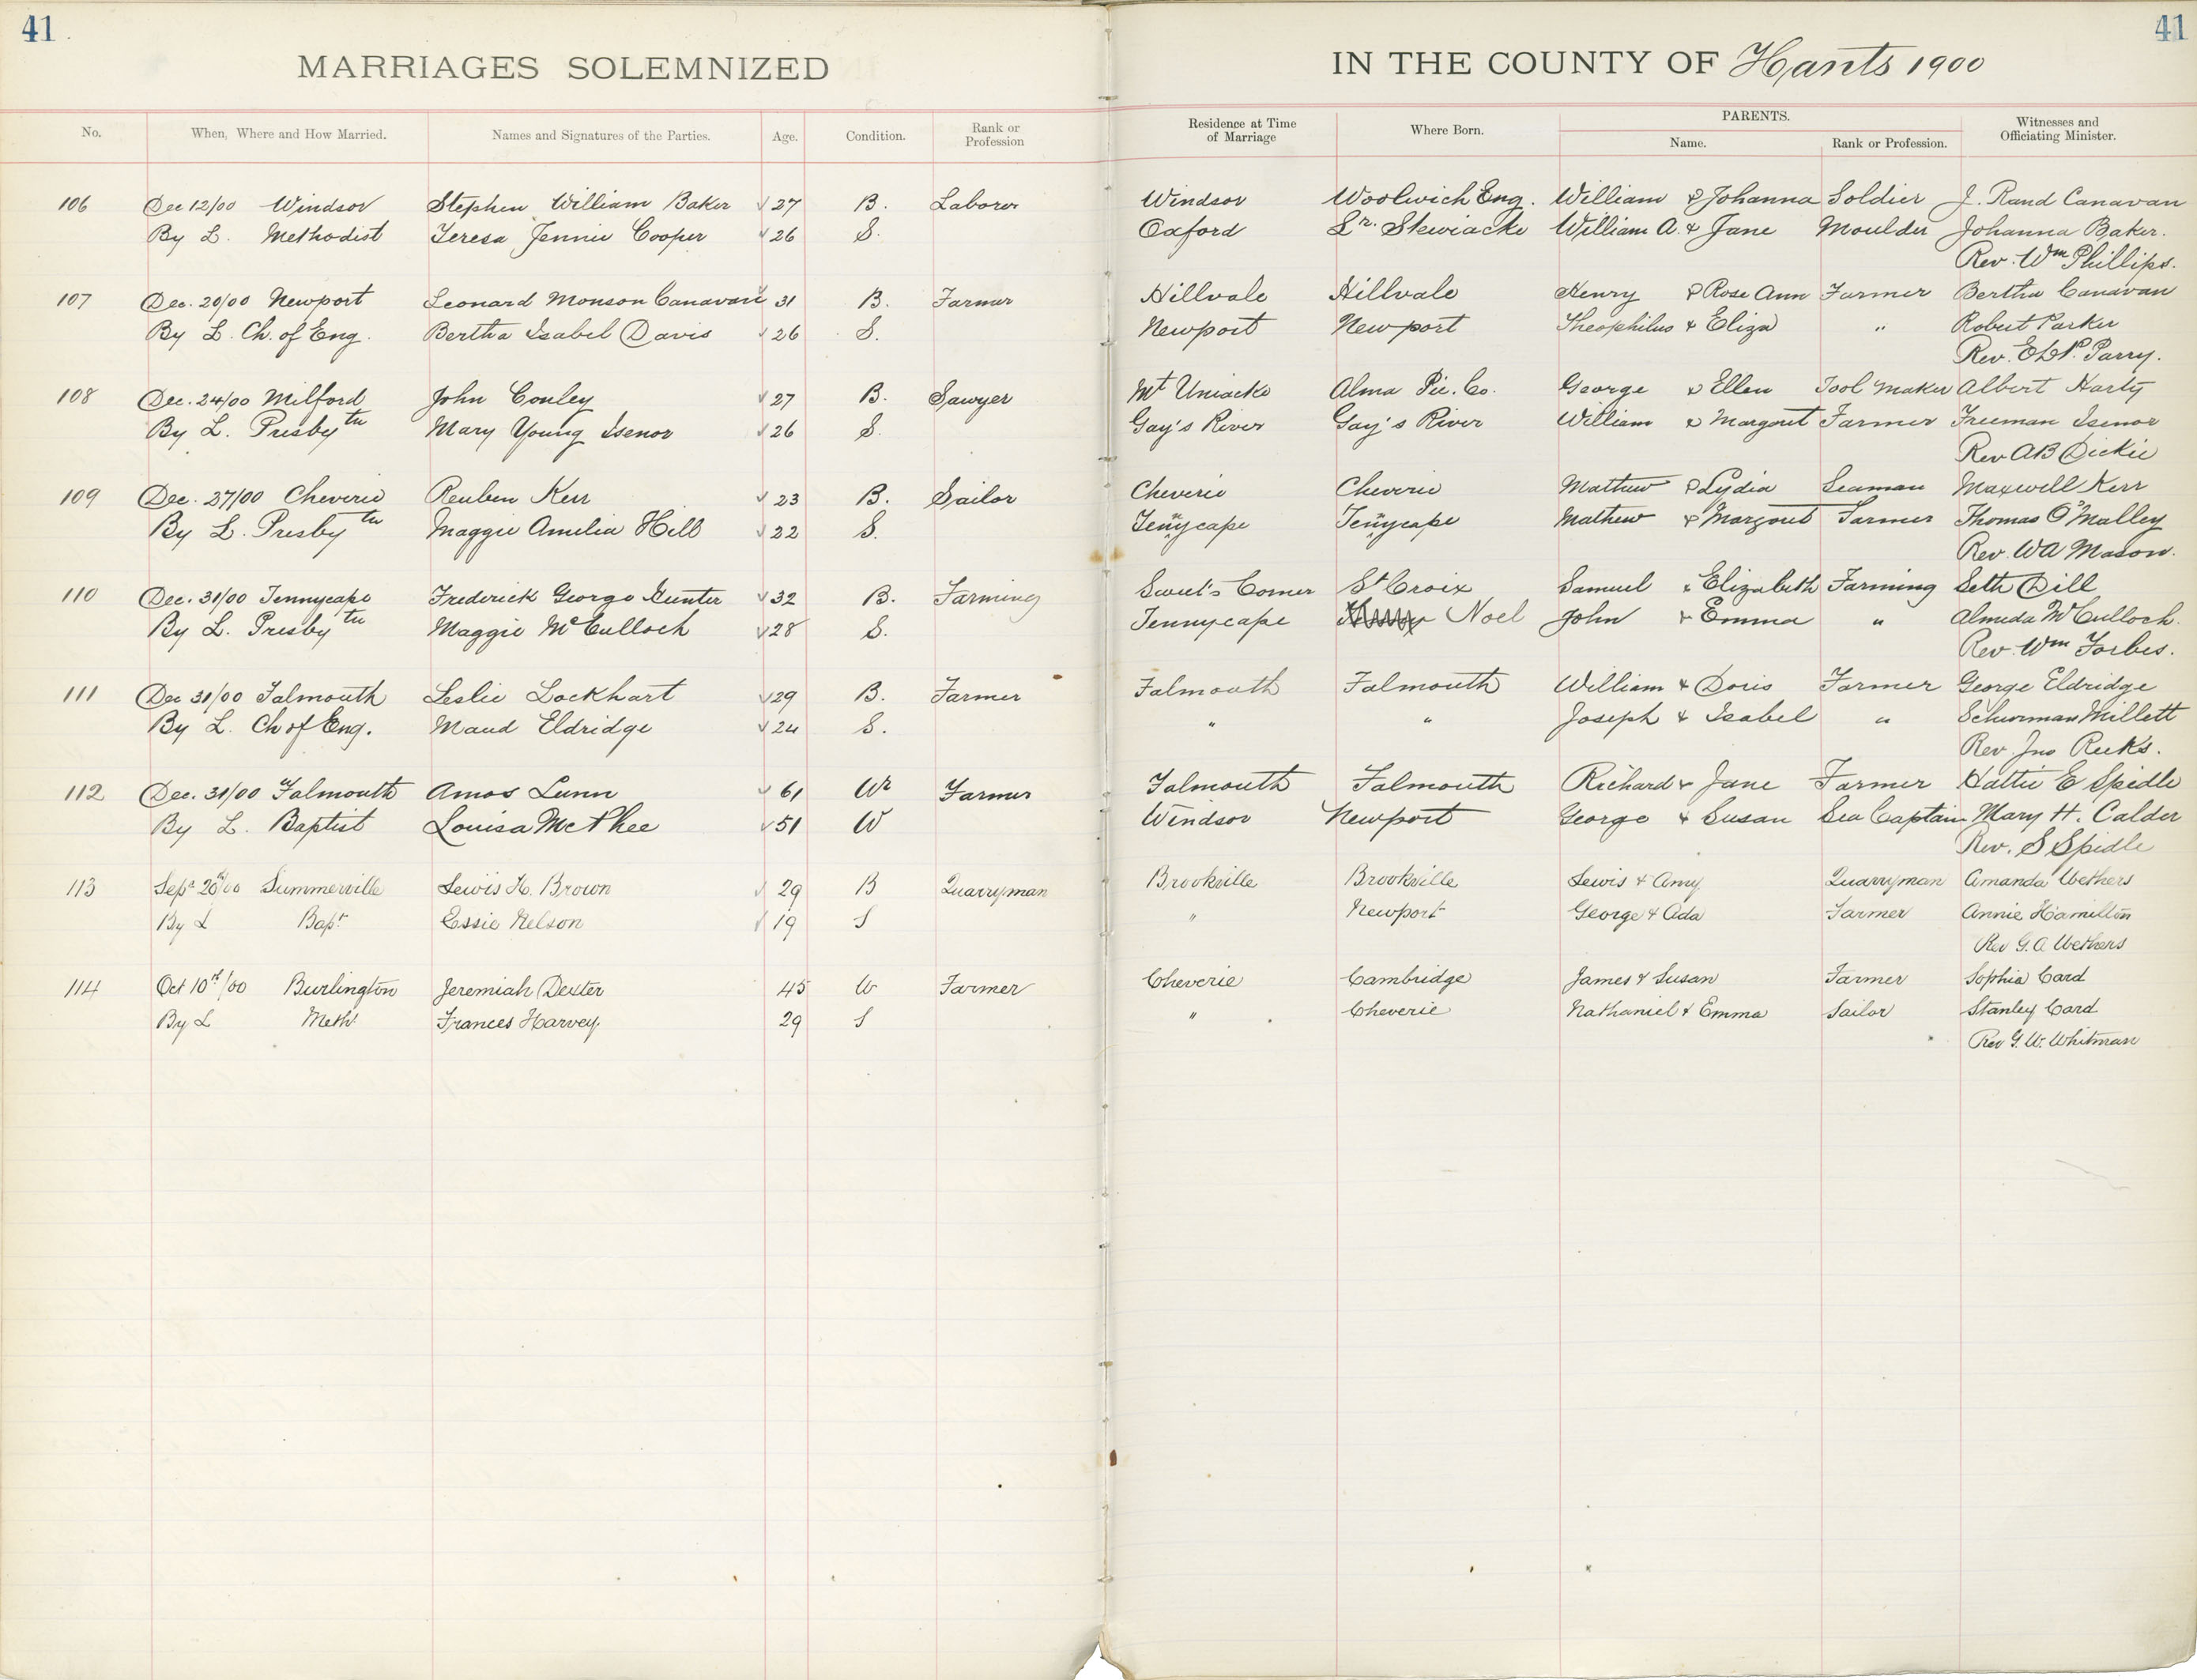 41
41
MARRIAGES SOLEMNIZED IN THE COUNTY OF Hants 1900
No. When, Where and How Married. Names and Signatures of the Parties. Age. Condition. Rank or Profession Residence at Time of Marriage Where Born. PARENTS. Name. Rank or Profession. Witnesses and Officiating Minister.
106 Dec 12/00 Windsor Stephen William Baker 27 B. Laborer Windsor Woolwich Eng. William & Johanna Soldier J. Rand Canavan
By L. Methodist Teresa Jennie Cooper 26 S. Oxford Lr. Stewiacke William A. & Jane Moulder Johanna Baker.
Rev. Wm Phillips.
107 Dec. 20/00 Newport Leonard Monson Canavan 31 B. Farmer Hillvale Hillvale Henry & Rose Ann Farmer Bertha Canavan
By L. Ch. of Eng. Bertha Isabel Davis 26 S. Newport Newport Theophilus & Eliza " Robert Parker
Rev. Parry.
108 Dec. 24/00 Milford John Conley 27 B. Sawyer Mt Uniacke Alma Pic. Co. George & Ellen Tool Maker Albert Harty
By L. Presbytn Mary Young Isenor 26 S. Gay's River Gay's River William & Margaret Farmer Freeman Isenor
Rev AB Dickie
109 Dec. 27/00 Cheverie Reuben Kerr 23 B. Sailor Cheverie Cheverie Mathew & Lydia Seaman Maxwell Kerr
By L. Presbytn Maggie Amelia Hill 22 S. Tennycape Tennycape Mathew & Margaret Farmer Thomas O'Malley
Rev. WA Mason.
110 Dec. 31/00 Tennycape Frederick George Gunter 32 B. Farming Sweet's Corner St Croix Samuel & Elizabeth Farming Seth Dill
By L. Presbytn Maggie McCulloch 28 S. Tennycape Noel John & Emma " Almeda McCulloch.
Rev. Wm Forbes.
111 Dec 31/00 Falmouth Leslie Lockhart 29 B. Farmer Falmouth Falmouth William & Doris Farmer George Eldridge
By L. Ch of Eng. Maud Eldridge 24 S. " " Joseph & Isabel " Schurman Millett
Rev. Jno Reeks.
112 Dec. 31/00 Falmouth Amos Lunn 61 Wr Farmer Falmouth Falmouth Richard & Jane Farmer Hattie E Spidle
By L. Baptist Louisa McPhee 51 W Windsor Newport George & Susan Sea Captain Mary H. Calder
Rev. S Spidle
113 Sept 20th/00 Summerville Lewis H. Brown 29 B Quarryman Brookville Brookville Lewis & Amy Quarryman Amanda Wethers
By L Bapt Essie Nelson 19 S " Newport George & Ada Farmer Annie Hamilton
Rev G. A. Wethers
114 Oct 10th/00 Burlington Jeremiah Dexter 45 W Farmer Cheverie Cambridge James & Susan Farmer Sophia Card
By L Meth. Frances Harvey. 29 S " Cheverie Nathaniel & Emma Sailor Stanley Card
Rev G. W. Whitman